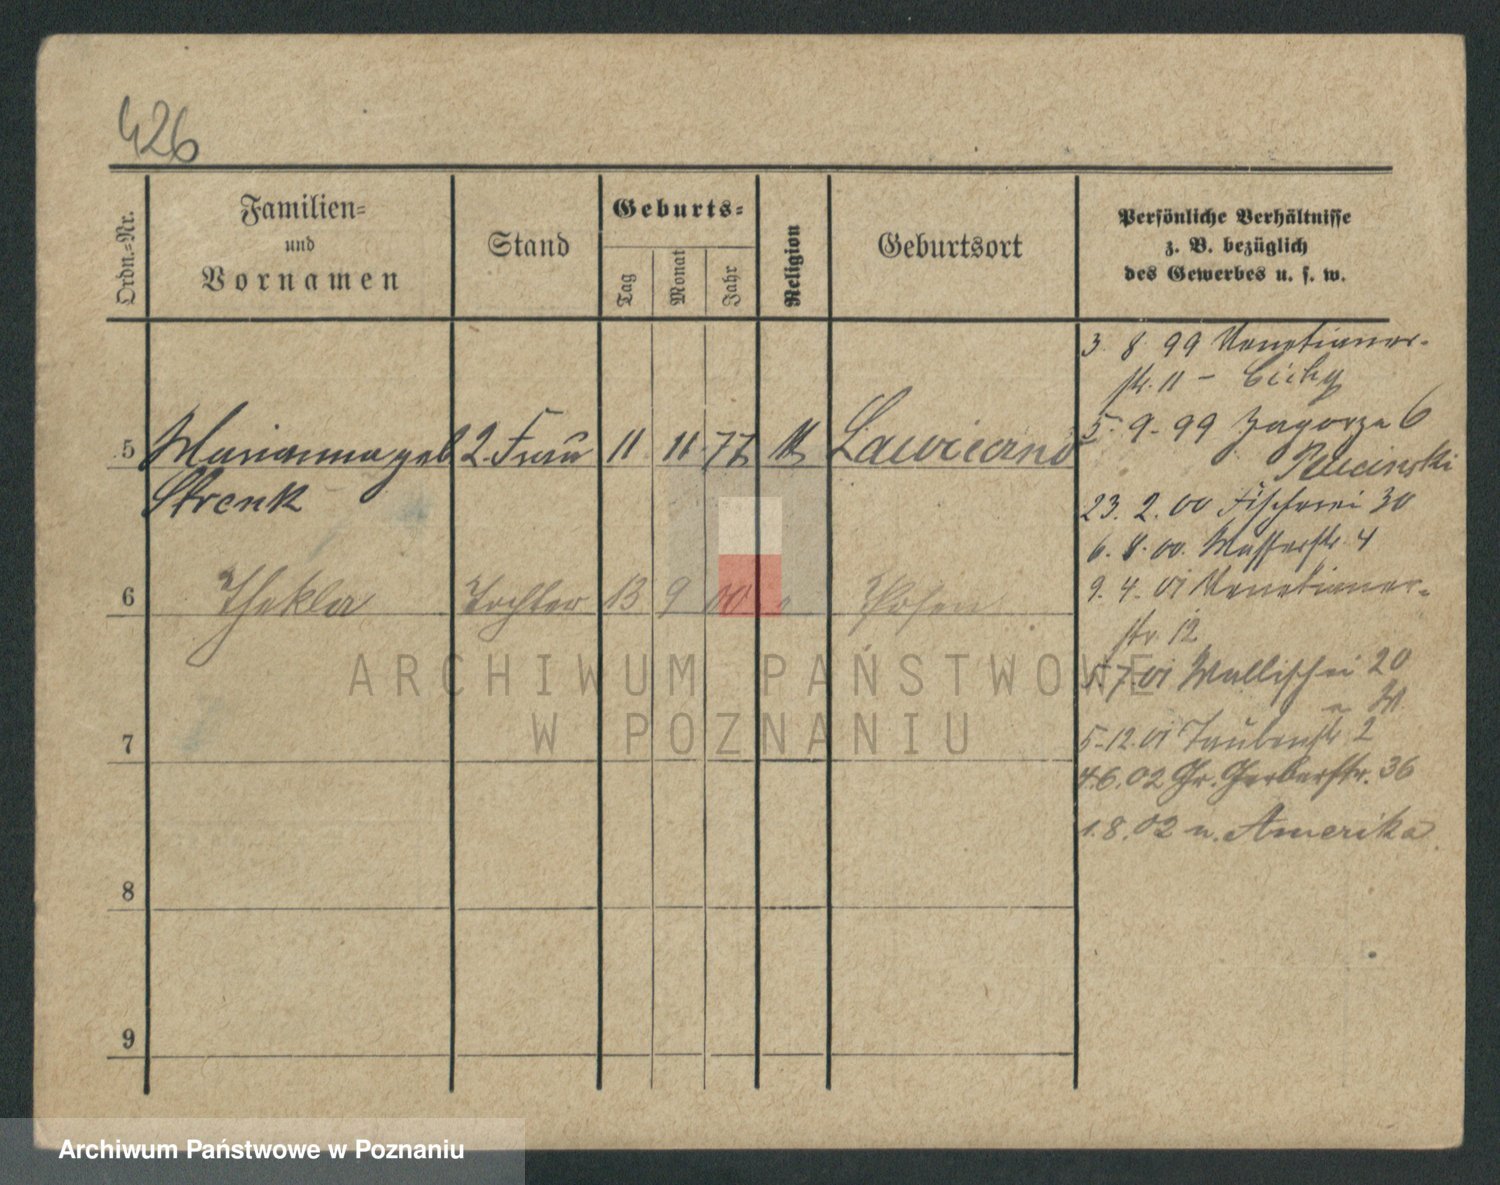 426
Ordn.=Nr.
Familien=
und
Vornamen
Stand
Geburts=
Tag
Monat
Jahr
Religion
Geburtsort
Persönliche Verhältnisse
z. B. bezüglich
des Gewerbes u. s. w.
5 Marianna geb 2. Frau 11 11 77
Strenk
6 Thekla Tochter 13 9 00 Posen
7
8
9
3. 8 99 Venetianer-
str. 11 - Cichy
5. 9. 99 Zagorze 6
23. 2. 00 Fischerei 30
6. 8. 00. Wasserstr. 4
9. 4. 01 Venetianer-
str. 12
5. 7. 01 Wallischei 20
5-12. 01 Taubenstr. 2
4.6.02 Gr. Gerberstr. 36
1.8.02 n. Amerika
ARCHIWUM PAŃSTWOWE
W POZNANIU
Archiwum Państwowe w Poznaniu